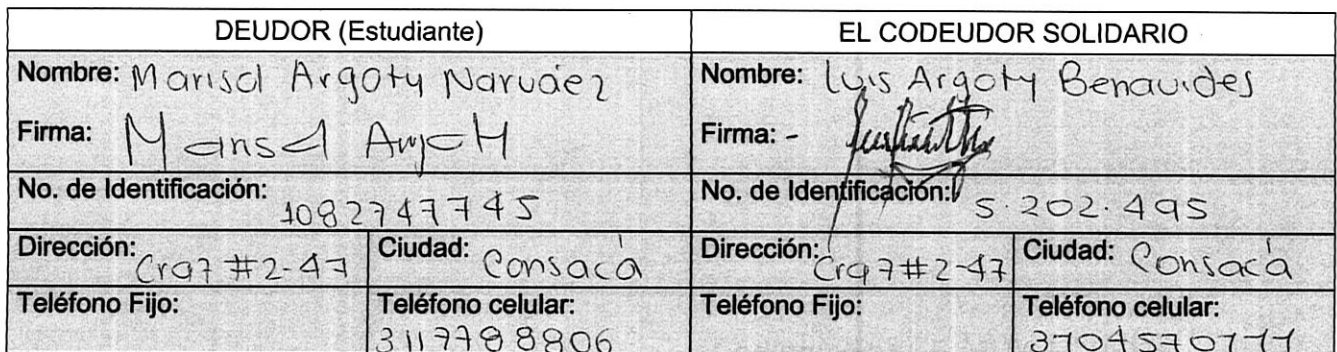 DEUDOR (Estudiante)
EL CODEUDOR SOLIDARIO
Nombre: Marisol Argoty Narváez
Nombre: Luis Argoty Benavides
Firma: Marisol Argoty
Firma: -
No. de Identificación: 1082747745
No. de Identificación: 5.202.495
Dirección: Cra7 #2-47
Ciudad: Consacá
Dirección: Cra 7#2-47
Ciudad: Consacá
Teléfono Fijo:
Teléfono celular: 3117788806
Teléfono Fijo:
Teléfono celular: